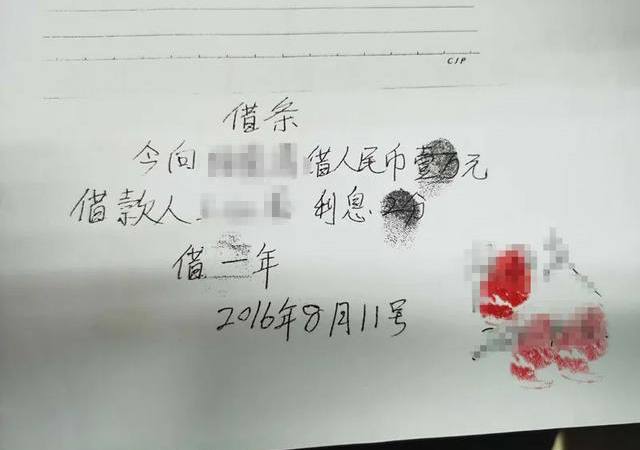 C/P
借条
今向 借人民币壹万元
借款人. 利息2分
借一年
2016年8月11号